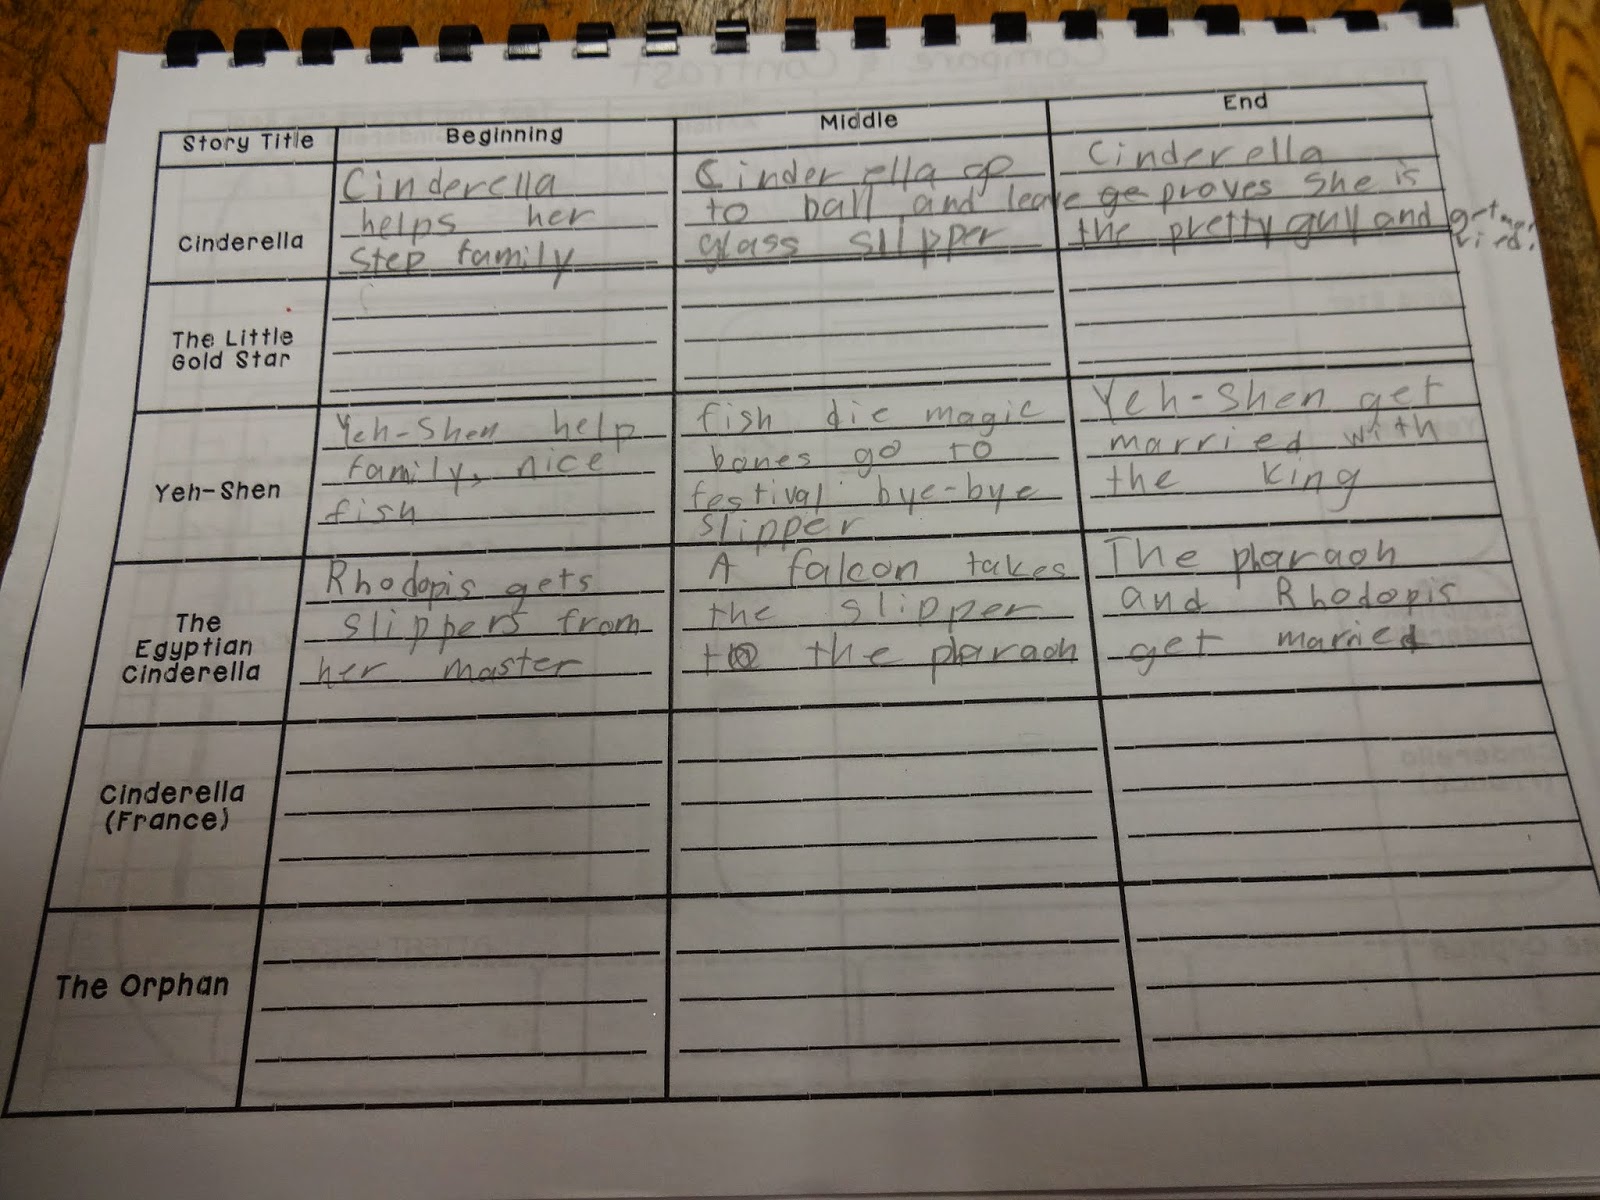 Compare & Contrast
Story Title
Beginning
Middle
End
Cinderella
Cinderella
helps her
step family
Cinderella go
to ball and leave
glass slipper
Cinderella
proves she is
the pretty gull and get mar
ried.
The Little
Gold Star
Yeh-Shen
Yeh-Shen help
family, nice
fish
fish die magic
bones go to
festival bye-bye
slipper
Yeh-Shen get
married with
the King
The
Egyptian
Cinderella
Rhodopis gets
slippers from
her master
A falcon takes
the slipper
to the pharaoh
The pharaoh
and Rhodopis
get married
Cinderella
(France)
The Orphan